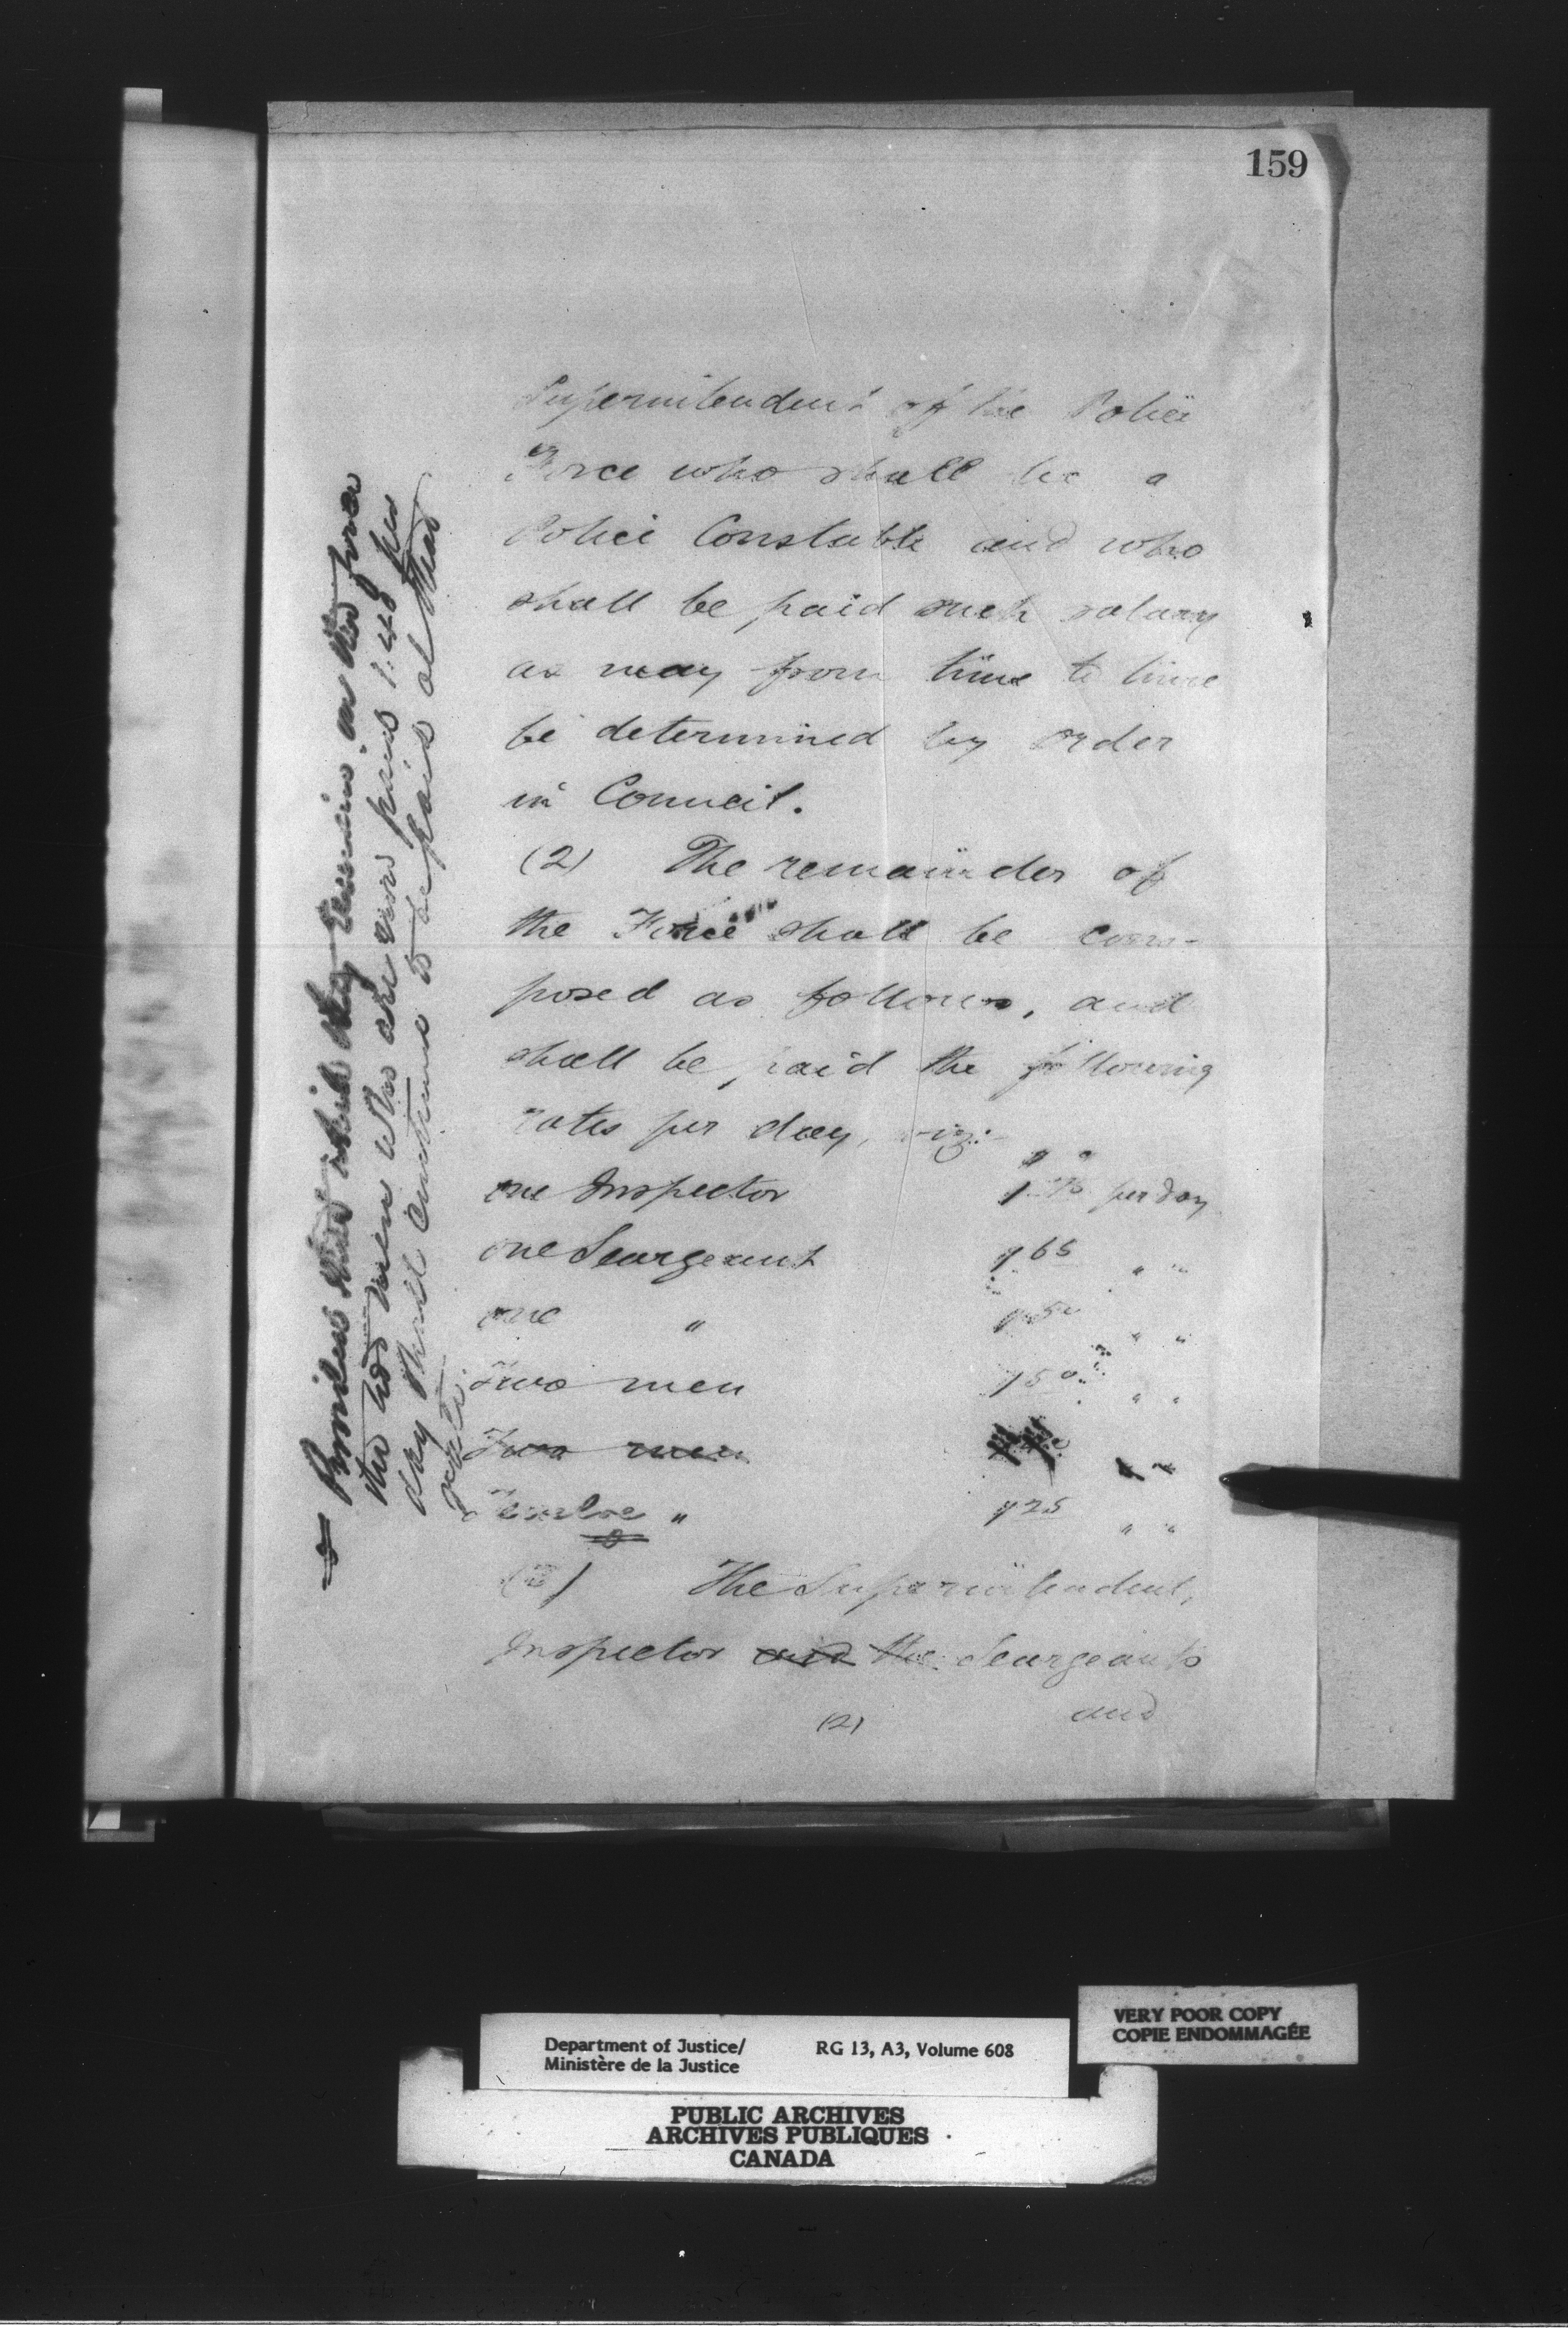 159
Superintendent of the Police
Force who shall be a
Police Constable and who
shall be paid such salary
as may from time to time
be determined by order
in Council.
(2) The remainder of
the Force shall be com-
posed as follows, and
shall be paid the following
rates per day, viz:-
one Inspector per day
one Seargeant 1 65 " "
one " 1 50 " "
Two men 1 50 " "
Two men " "
Twelve " 1 25 " "
The Superintendent,
Inspector and the Seargeants
(2) and
Provided that while they remain on the force
the two men who are now paid 1.40 per
day shall continue to be paid at that
rate.
Department of Justice/
Ministère de la Justice
RG 13, A3, Volume 608
VERY POOR COPY
COPIE ENDOMMAGÉE
PUBLIC ARCHIVES
ARCHIVES PUBLIQUES
CANADA